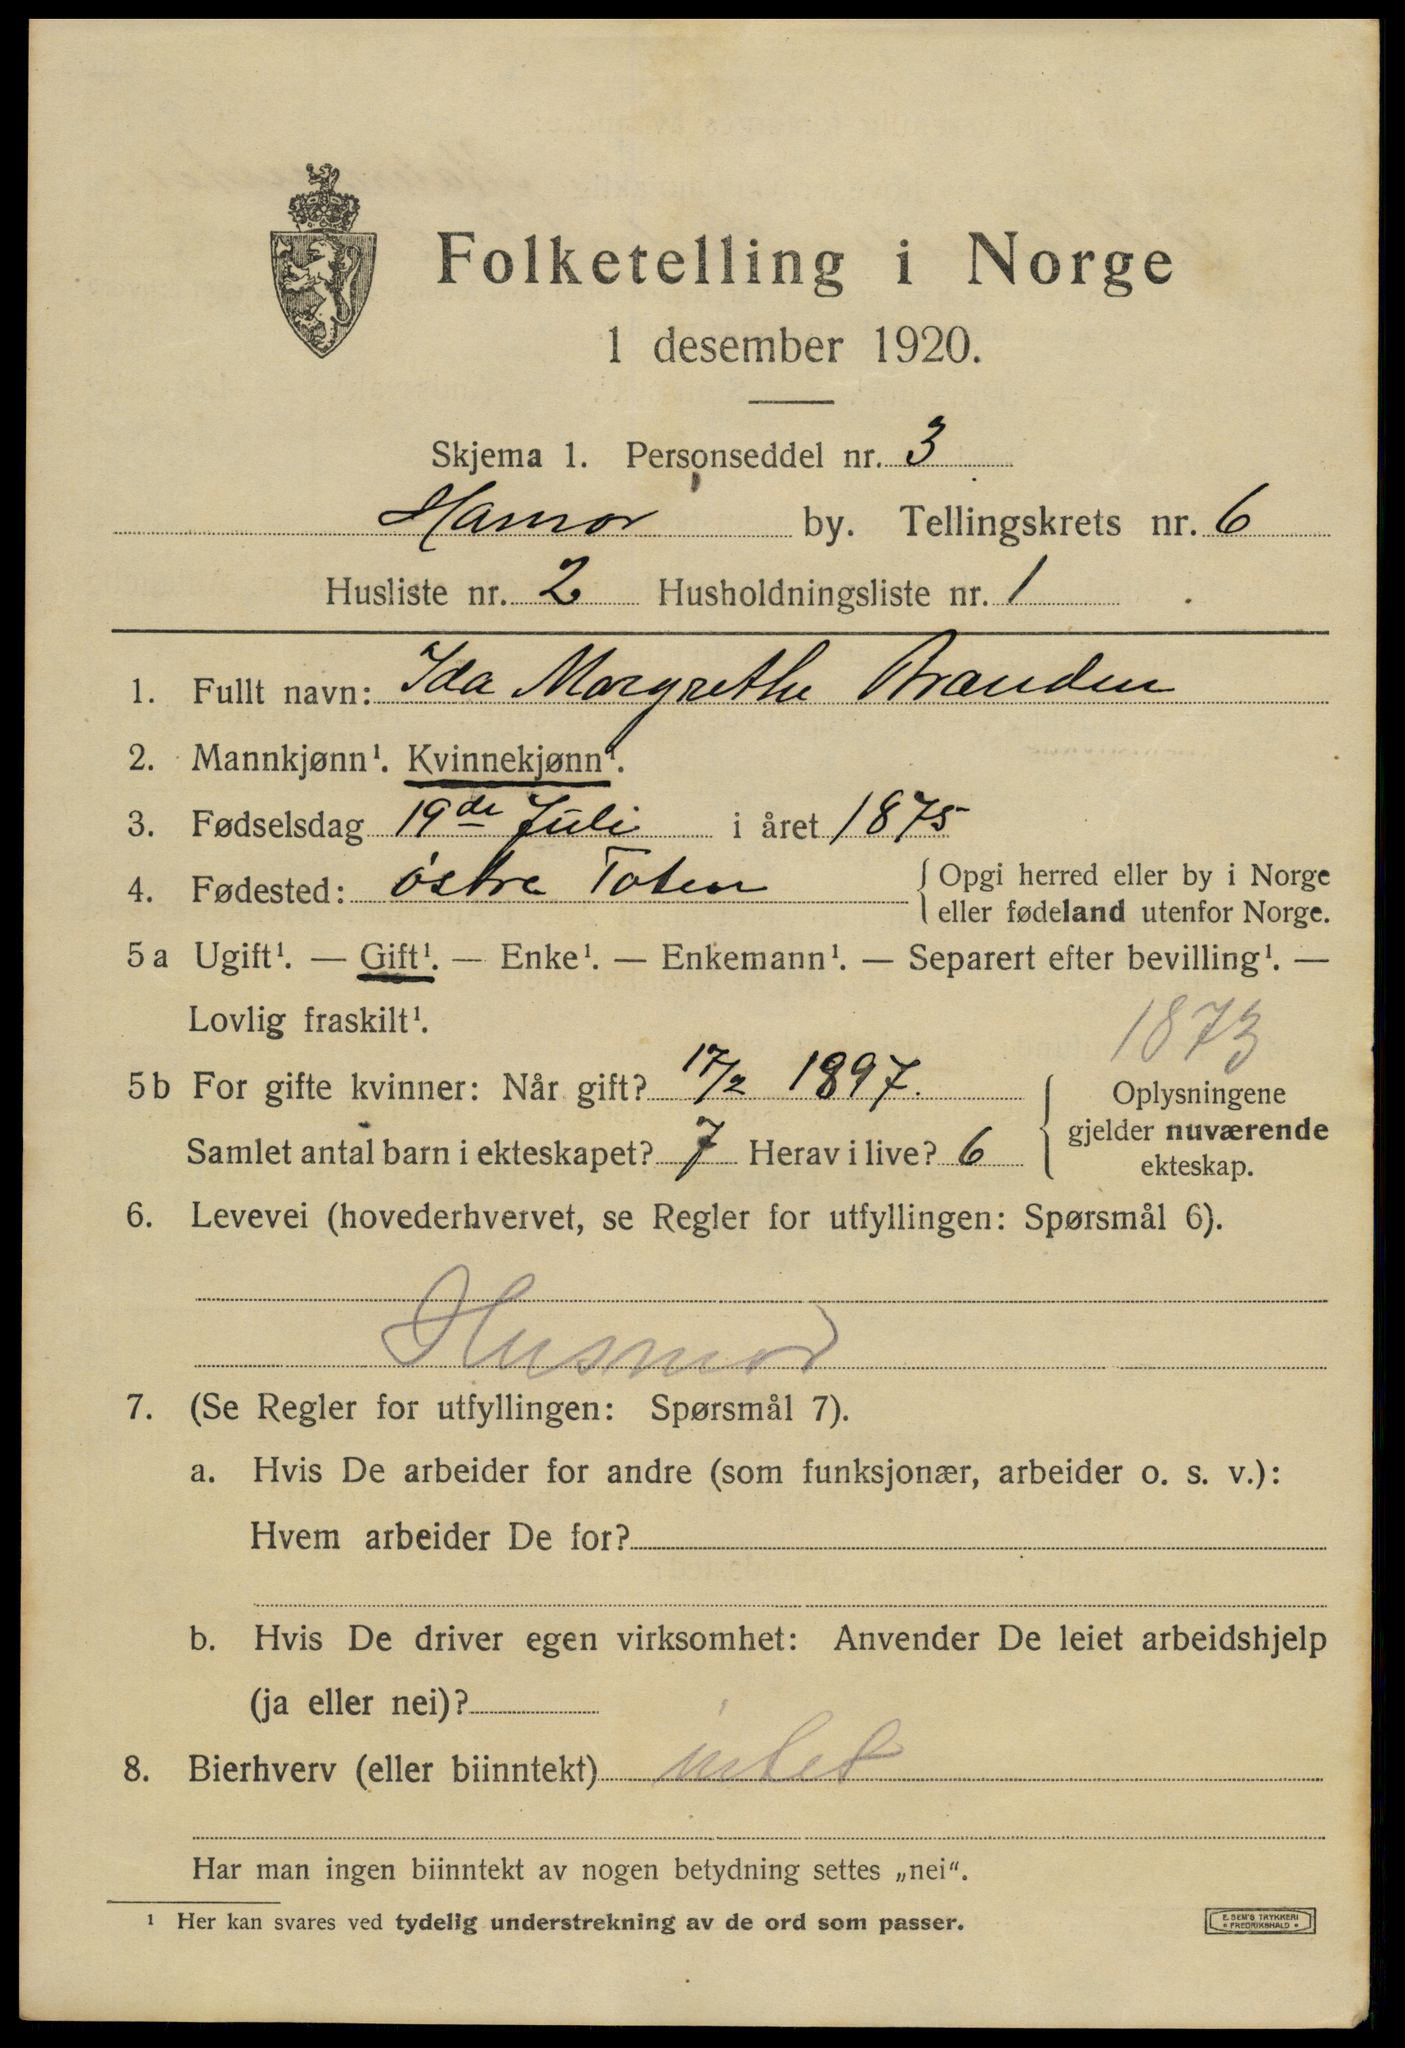 Folketelling i Norge
1 desember 1920.
Skjema 1. Personseddel nr. 3
Hamar by. Tellingskrets nr. 6
Husliste nr. 2 Husholdningsliste nr. 1
1. Fullt navn: Ida Margrethe Brænden
2. Mannkjønn¹. Kvinnekjønn¹.
3. Fødselsdag 19de Juli i året 1875
4. Fødested: østre Toten { Opgi herred eller by i Norge
eller fødeland utenfor Norge.
5a Ugift¹. — Gift¹. — Enke¹. — Enkemann¹. — Separert efter bevilling¹. —
Lovlig fraskilt¹.
1873
5b For gifte kvinner: Når gift? 17/2 1897. { Oplysningene
gjelder nuværende
Samlet antal barn i ekteskapet? 7 Herav i live? 6
ekteskap.
6. Levevei (hovederhvervet, se Regler for utfyllingen: Spørsmål 6).
Husmor
7. (Se Regler for utfyllingen: Spørsmål 7).
a. Hvis De arbeider for andre (som funksjonær, arbeider o. s. v.):
Hvem arbeider De for?
b. Hvis De driver egen virksomhet: Anvender De leiet arbeidshjelp
(ja eller nei)?
8. Bierhverv (eller biinntekt) intet
Har man ingen biinntekt av nogen betydning settes „nei“.
¹ Her kan svares ved tydelig understrekning av de ord som passer.
E. SEM'S TRYKKERI
* FREDRIKSHALD *